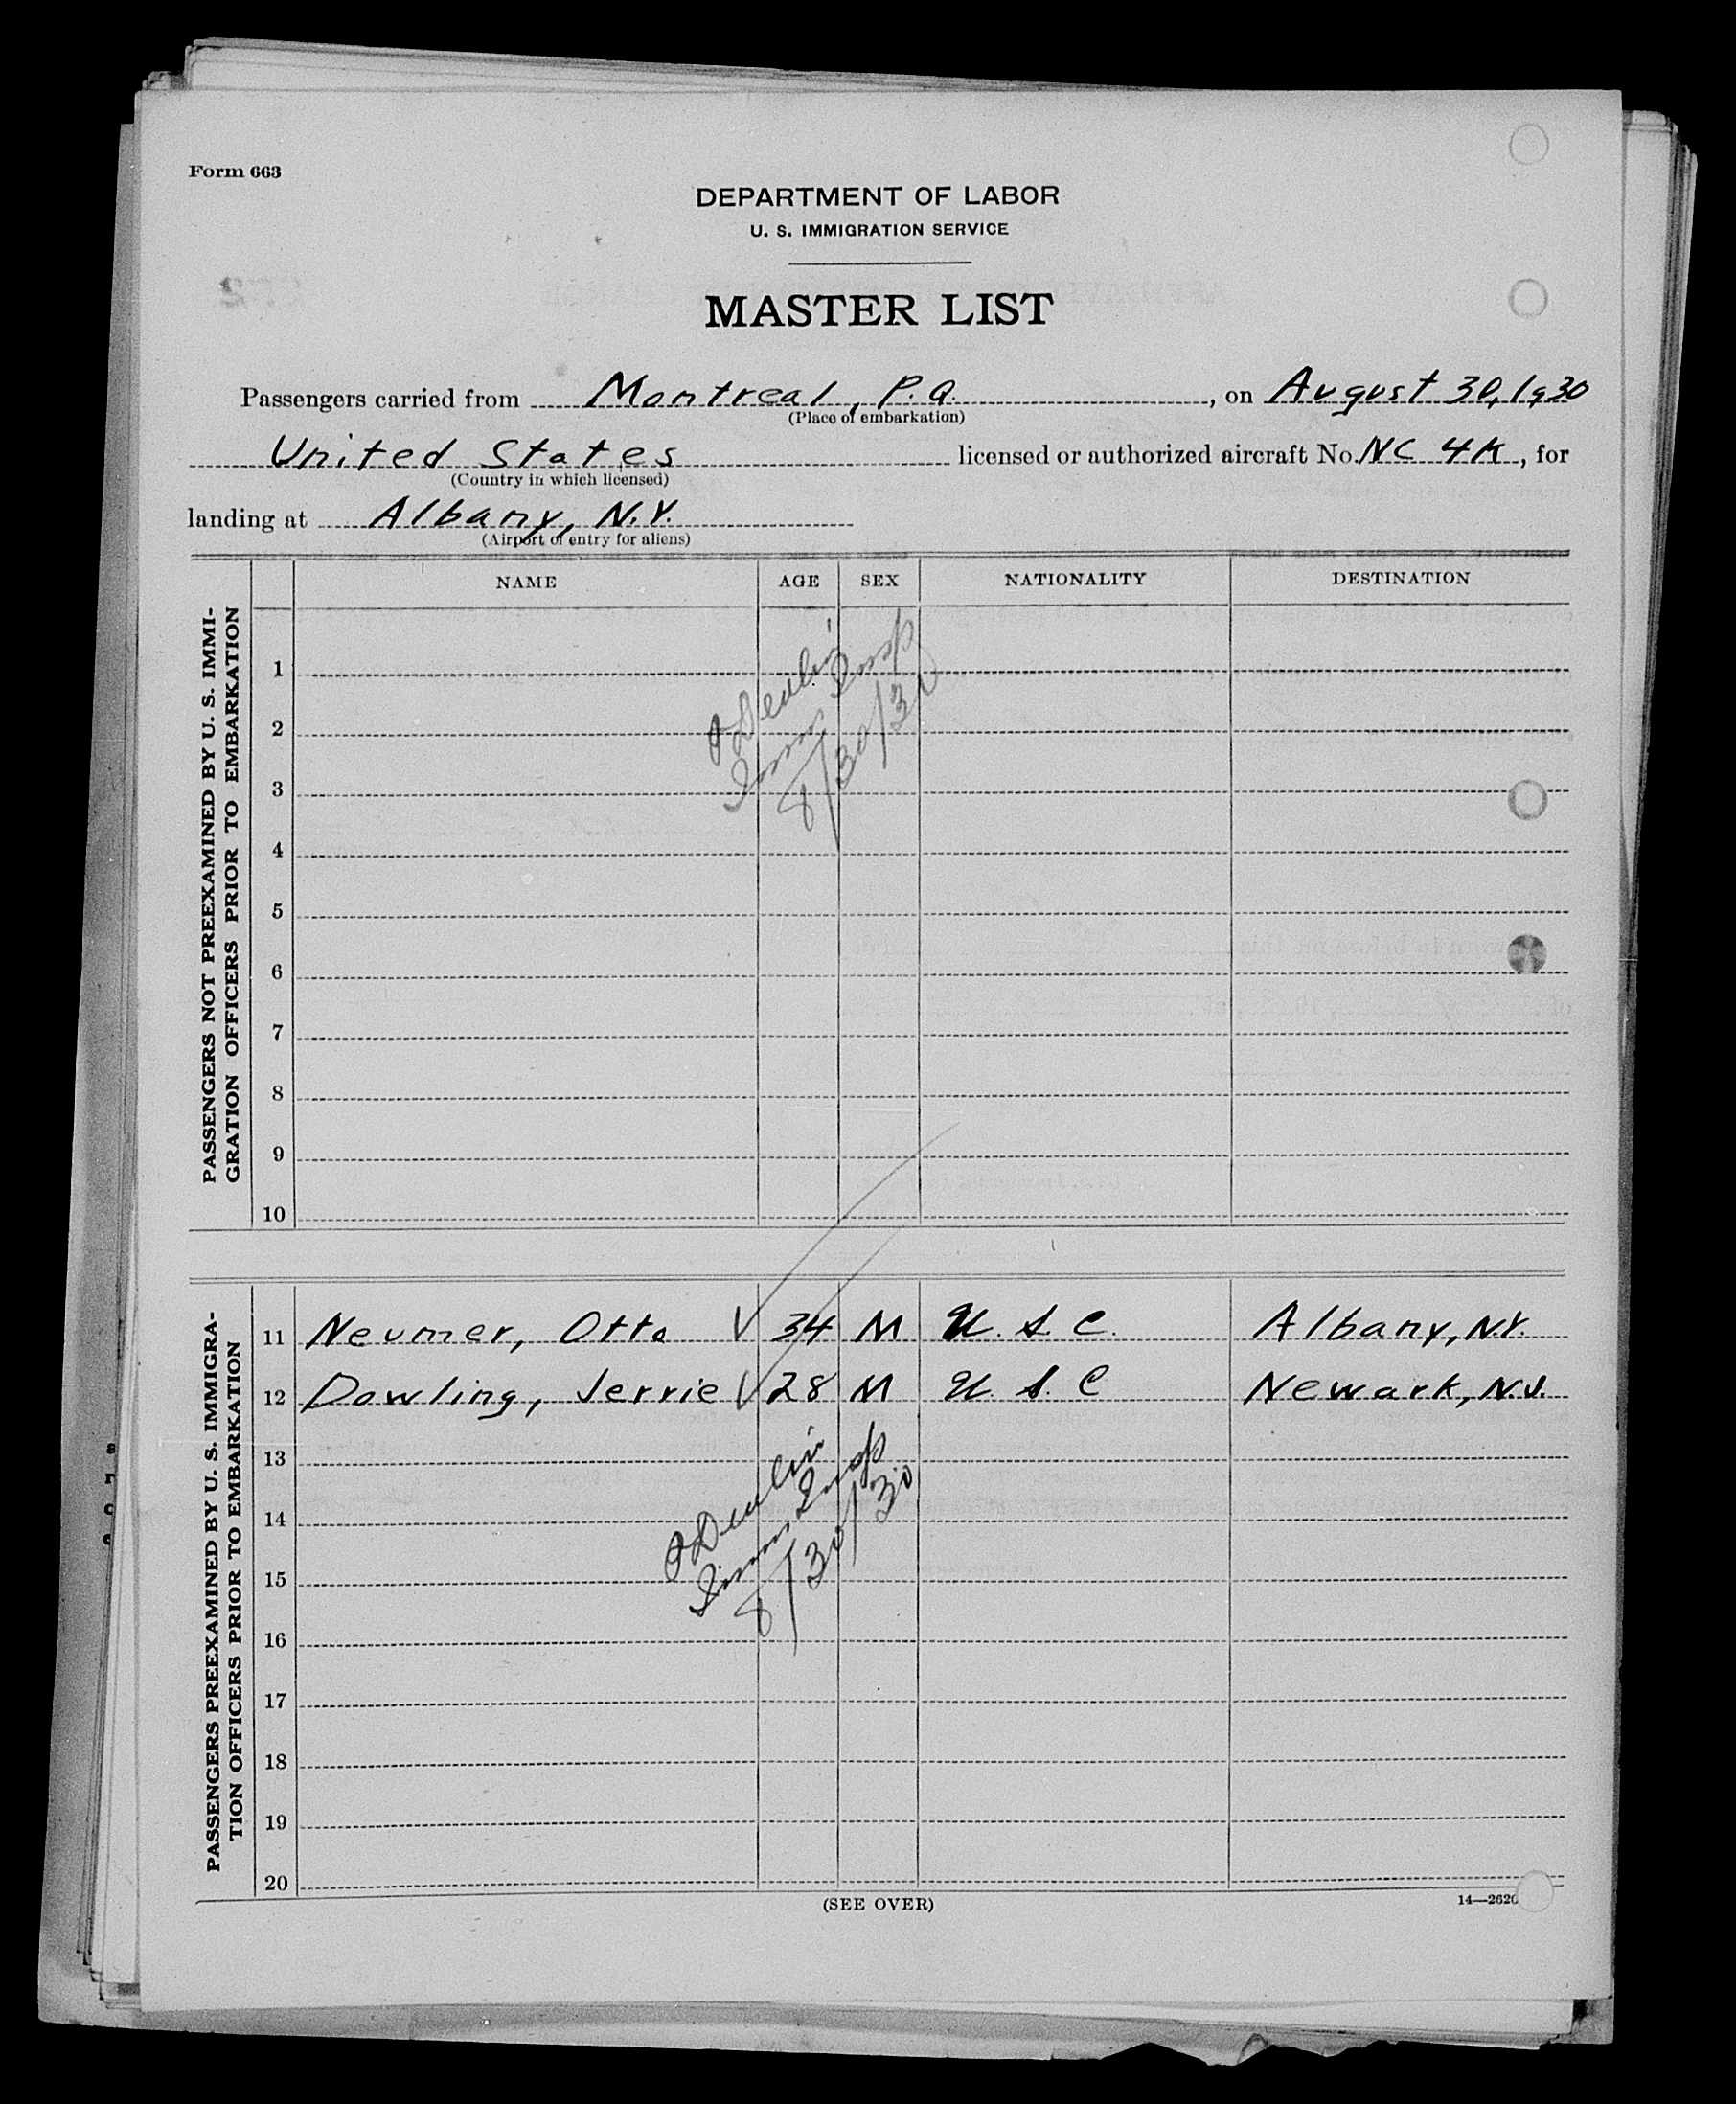 Form 663
DEPARTMENT OF LABOR
U. S. IMMIGRATION SERVICE
MASTER LIST
Passengers carried from Montreal, P.Q. , on August 30, 1930
(Place of embarkation)
United States licensed or authorized aircraft No. NC 4K, for
(Country in which licensed)
landing at Albany, N.Y.
(Airport of entry for aliens)
NAME AGE SEX NATIONALITY DESTINATION
PASSENGERS NOT PREEXAMINED BY U. S. IMMI-
GRATION OFFICERS PRIOR TO EMBARKATION
1
2
3
4
5
6
7
8
9
10
Devlin
Imm Insp
8/30/30
PASSENGERS PREEXAMINED BY U. S. IMMIGRA-
TION OFFICERS PRIOR TO EMBARKATION
11 Neumer, Otto ✓ 34 M U. S. C. Albany, N.Y.
12 Dowling, Jerrie ✓ 28 M U. S. C Newark, N.J.
13
14
15
16
17
18
19
20
Devlin
Imm Insp
8/30/30
(SEE OVER)
14—2620